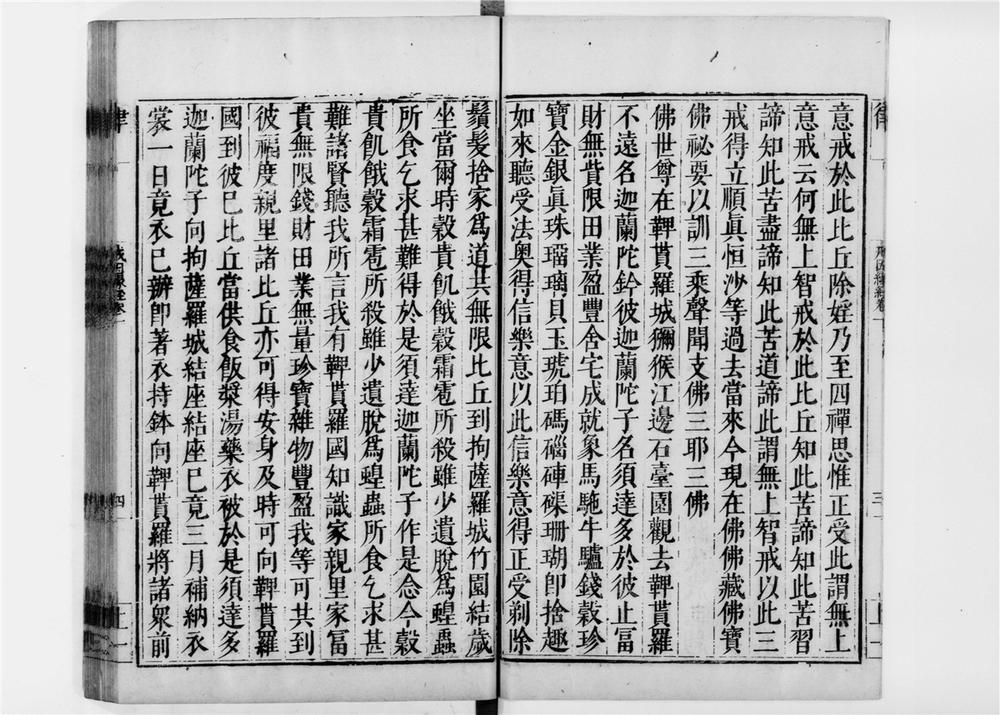 意戒於此比丘除婬乃至四禪思惟正受此謂無上
意戒云何無上智戒於此比丘知此苦諦知此苦習
諦知此苦盡諦知此苦道諦此謂無上智戒以此三
戒得立順眞恒沙等過去當來今現在佛佛藏佛寶
佛祕要以訓三乘聲聞支佛三耶三佛
佛世尊在鞞貰羅城獼猴江邊石臺園觀去鞞貰羅
不遠名迦蘭陀鈐彼迦蘭陀子名須達多於彼止冨
財無貲限田業盈豐舍宅成就象馬駞牛驢錢穀珍
寶金銀眞珠瑠璃貝玉琥珀碼碯硨磲珊瑚卽捨趣
如來聽受法奧得信樂意以此信樂意得正受剃除
鬚髮捨家爲道其無限比丘到拘薩羅城竹園結歲
坐當爾時穀貴飢餓穀霜雹所殺雖少遺脫爲蝗蟲
所食乞求甚難得於是須達迦蘭陀子作是念今穀
貴飢餓穀霜雹所殺雖少遺脫爲蝗蟲所食乞求甚
難諸賢聽我所言我有鞞貰羅國知識家親里家冨
貴無限錢財田業無量珍寶雜物豐盈我等可共到
彼福度親里諸比丘亦可得安身及時可向鞞貰羅
國到彼巳比丘當供食飯漿湯藥衣被於是須達多
迦蘭陀子向拘薩羅城結座結座巳竟三月補納衣
裳一日竟衣巳辦卽著衣持鉢向鞞貰羅將諸衆前
律
四